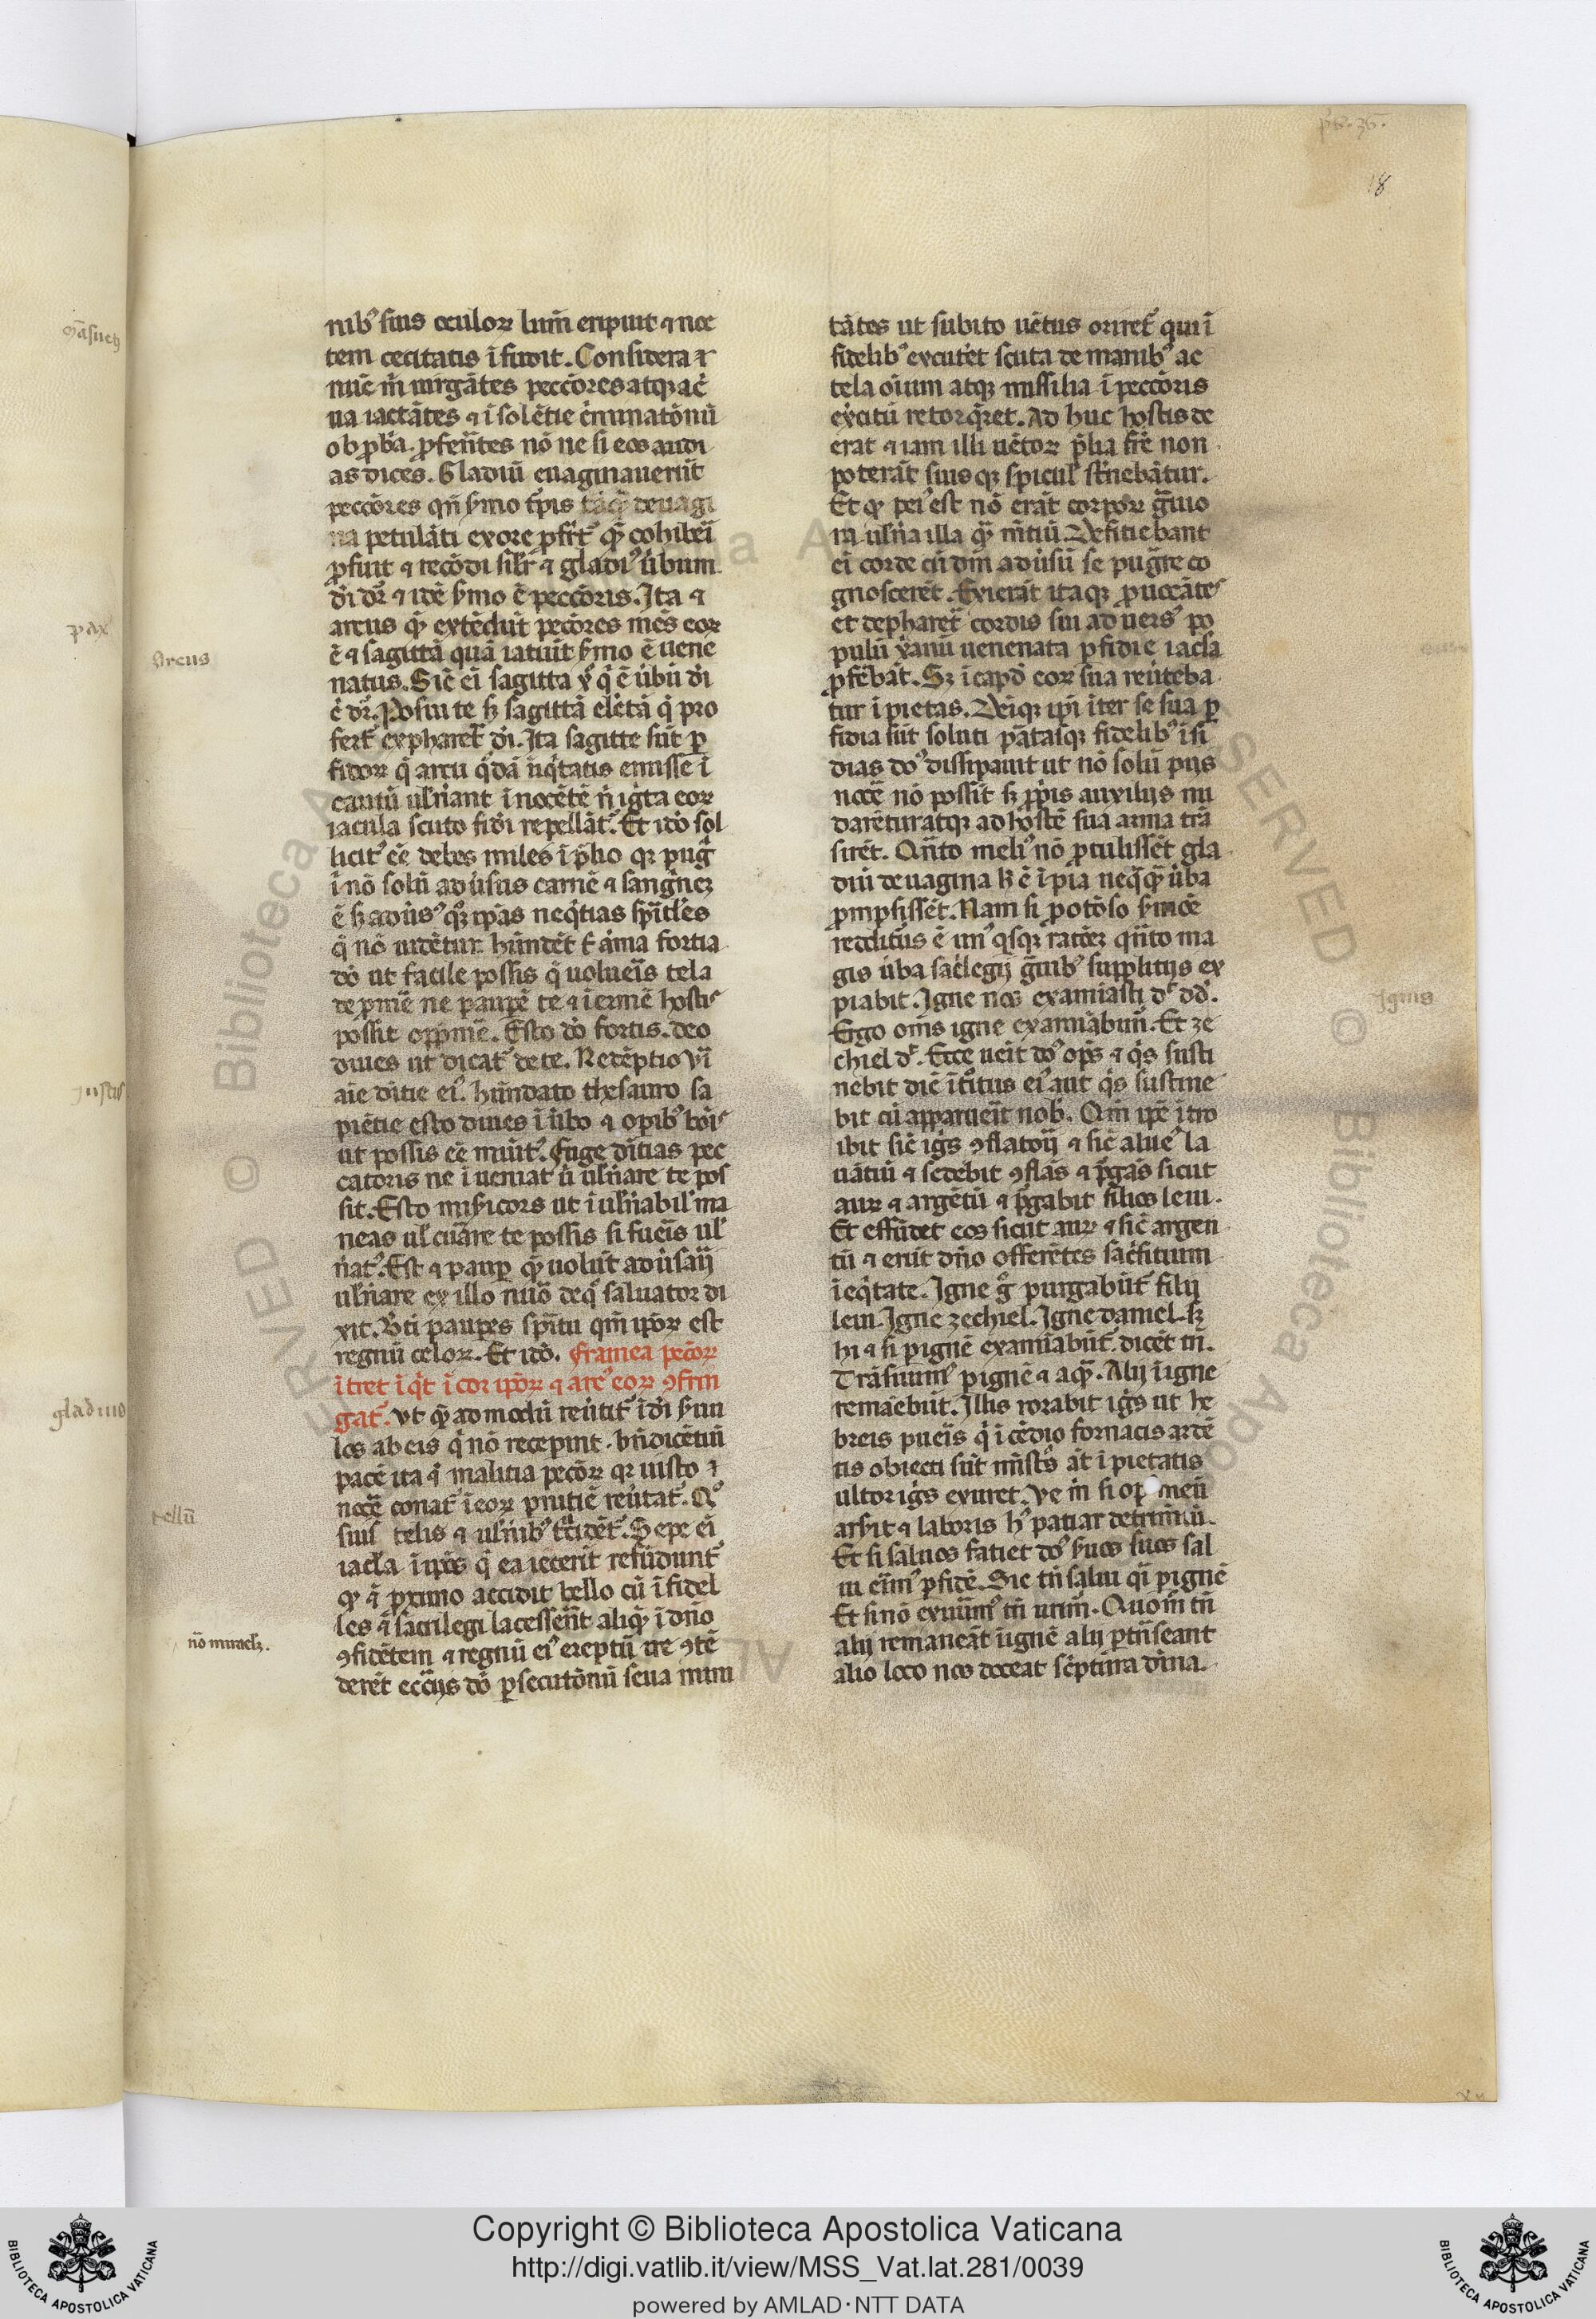 ps. 36.
18
nib᾽ suis oculoꝝ lum̄ eripuit ⁊ noc
tem cecitatis ī fudit. Considera ⁊
nūc m̄ iurgātes peccōres atqꝫ ac̄
ua iactātes ⁊ īsolētie ēminatōnū
obprb̄a ꝓferētes nō ne si eos audi
as dices. Gladiū euaginauerūt
peccōres qn̄ s̄mo tp̄is tāq̄ᷓ deuagi
na petulāti exore ꝓfert᾽ qᷓ cohiberi
ꝓfuit ⁊ recōdi silr̄ ⁊ gladi᾽ ūbum
di dr̄ ⁊ idē s̄mo ē peccōris. Ita ⁊
arcus qͥ extēdūt pecōres mēs eoꝝ
ē ⁊ sagittā quā iacūt s̄mo ē uene
natus. Sic̄ ei sagitta xp̄ qͥ ē ūbū di
ē dr̄. Posui te sꝫ sagittā elc̄tā qͥ pro
fert᾽ expharet̄ di. Ita sagitte sūt ꝑ
fidoꝝ qͥ arcu qͦdā īiqͥtatis emisse ī
cautū uln̄ant īnocētē n̄ igīta eoꝝ
iacula scuto fidi repellāt᾽. Et idō sol
licit᾽ eē debes miles ī ꝓlio qꝛ pugͣ
ī nō solū adūsus carnē ⁊ sangͥneꝫ
ē sꝫ adūs᾽ qͦꝫ ip̄as neqͥtias spirit̄les
qͥ nō uidētur. hūndēt tͥ āma fortia
dō ut facile possis qͥ uolueīs tela
deꝑme ne pauꝑē te ⁊ īermē hosti᾽
possit opprime. Esto dō fortis. deo
diues ut dicat᾽ de te. Redēptio vi
aīe ditie ei᾽. hūndato thesauro sa
piētie esto diues ī ūbo ⁊ opib᾽ boi᾽
ut possis eē mūit᾽. Fuge dītias pec
catoris ne īueniat ū uln̄are te pos
sit. Esto mis̄icors ut īuln̄abil᾽ ma
neas ul᾽ cuāre te possis si fueīs ul᾽
n̄at᾽. Est ⁊ pauꝑ qͣ uolūt adūsarij
uln̄are ex illo nūō deqͦ saluator di
xit. Bti pauꝑes spītu qm̄ ipōꝝ est
regnū celoꝝ. Et idō. Framea pecōꝝ
ītret īqͥt ī cor ipōꝝ ⁊ arc᾽ eoꝝ ꝯfrin
gat᾽. Vt qͣ admodū reūtit᾽ īdi s̄uu
los ab eis qͥ nō receperint. bn̄dicētiū
pacē ita qͥ malitia pecōꝝ qꝛ iusto ⁊
nocē conat᾽ ī eoꝝ pnitiē reūtat᾽. Qͦ
suis telis ⁊ uln̄ib᾽ trͥcidēt᾽. Sepe ei
iac̄la ī ip̄os qͥ ea iecerīt refūdunt᾽
qͥ ī proximo accidit bello cū īfidel
les ⁊ sacrilegi lacesserēt aliqͣ ī dn̄o
ꝯfidētem ⁊ regnū ei᾽ ereptū ire ꝯtē
derēt eccl̄ijs dō ꝑsecutōnū seua minī
tātes ut subito uētus oriret᾽ qui ī
fidelib᾽ excutēt scuta de manib᾽ ac
tela oīum atqꝫ missilia ī peccōris
exēcitū retorqͥret. Ad huc hostis de
erat ⁊ iam illi uētoꝝ ꝓlia frē non
poterāt suis qꝫ spicul᾽ st̄nebātur.
Et qͥ pei᾽ est nō erāt corpoꝝ gͣuio
ra uln̄a illa qͣ mētiū. Deficiebant
ei corde cū dm̄ adūsū se pugͣre co
gnoscerēt. Exierāt itaqꝫ ꝓuocātes
et depharet̄ cordis sui aduers᾽ po
pulū xp̄ianū uenenata ꝑfidie iac̄la
ꝓferēbāt. Sꝫ ī capd̄ eoꝝ sua reūteba
tur ī pietas. Deiqꝫ ipi īter se sua ꝑ
fidia sūt soluti pͣatasqꝫ fidelib᾽ īsi
dias do᾽ dissipauit ut nō solū pijs
nocē nō possīt sꝫ ꝓpis auxilijs nu
darēturatqꝫ ad hostē sua arma trā
sirēt. Qͣnto meli᾽ nō ꝓtulissēt gla
diū deuagina h᾽ ē ī pia neqͥqͣ ūba
prompsissēt. Nam si ꝓ otōso s̄mōe
reddit᾽us ē un᾽ qͥsqꝫ ratōeꝫ qͣnto ma
gis ūba sac̄legij gͣuib᾽ supplitijs ex
piabit. Igne nos examiasti dͬ dd̄.
Ergo om̄s igne examiābim᾽. Et ze
chiel dͬ. Ecce ueīt do᾽ op̄s ⁊ qͥs susti
nebit diē ītroitus ei᾽ aut qͥs sustine
bit cū apparueīt nob᾽. Qm̄ ip̄e ītro
ibit sic̄ igͥs ꝯflatorij ⁊ sic̄ alue᾽ la
uātiū ⁊ sedebit ꝯflās ⁊ pͥgās sicut
auꝝ ⁊ argētū ⁊ pͥgabit filios leui.
Et effūdet eos sicut auꝝ ⁊ sic̄ argen
tū ⁊ erūt dn̄o offerētes sac̄fitium
ī eqͥtate. Igne gͦ purgabūt᾽ filij
leui. Igne zechiel. Igne daniel. sꝫ
hi ⁊ si ꝑ ignē examiābūt᾽. dicēt tn̄.
Trāsiuim᾽ ꝑ ignē ⁊ aqͣ. Alij ī igne
remāebūt. Illis rorabit igͥs ut he
breis pueīs qͥ īcēdio fornacis ardē
tis obiecti sūt mīst᾽s āt ī pietatis
ultor igͥs exuret. Ve m̄ si op᾽ meū
arsīt ⁊ laboris h᾽ patiar detrimētū.
Et si saluos faciet do᾽ s̄uos suos sal
ui eīm᾽ ꝑ fidē. Sic tn̄ salui qͣi ꝑ ignē
Et si nō exurim᾽ tn̄ urim᾽. Quom̄ tn̄
alij remaneāt ī ignē alij ꝑtrāseant
alio loco nos doceat sc̄ptura diuīa.
Arcus
bellū
nō mireꝝ.
Ignis
pax
iustus
gladius
Copyright © Biblioteca Apostolica Vaticana
http://digi.vatlib.it/view/MSS_Vat.lat.281/0039
powered by AMLAD·NTT DATA
BIBLIOTECA APOSTOLICA VATICANA
BIBLIOTECA APOSTOLICA VATICANA